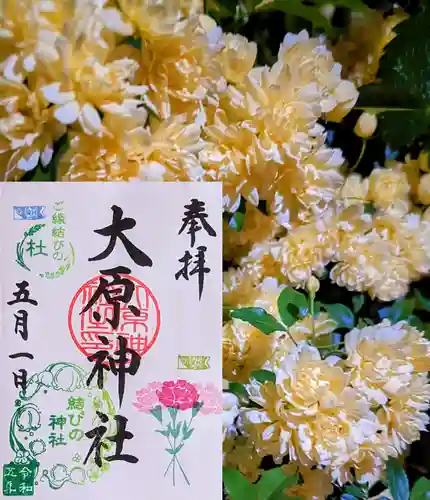 奉拝
大原神社
ご縁結びの
社
五月一日
結びの
神社
令和